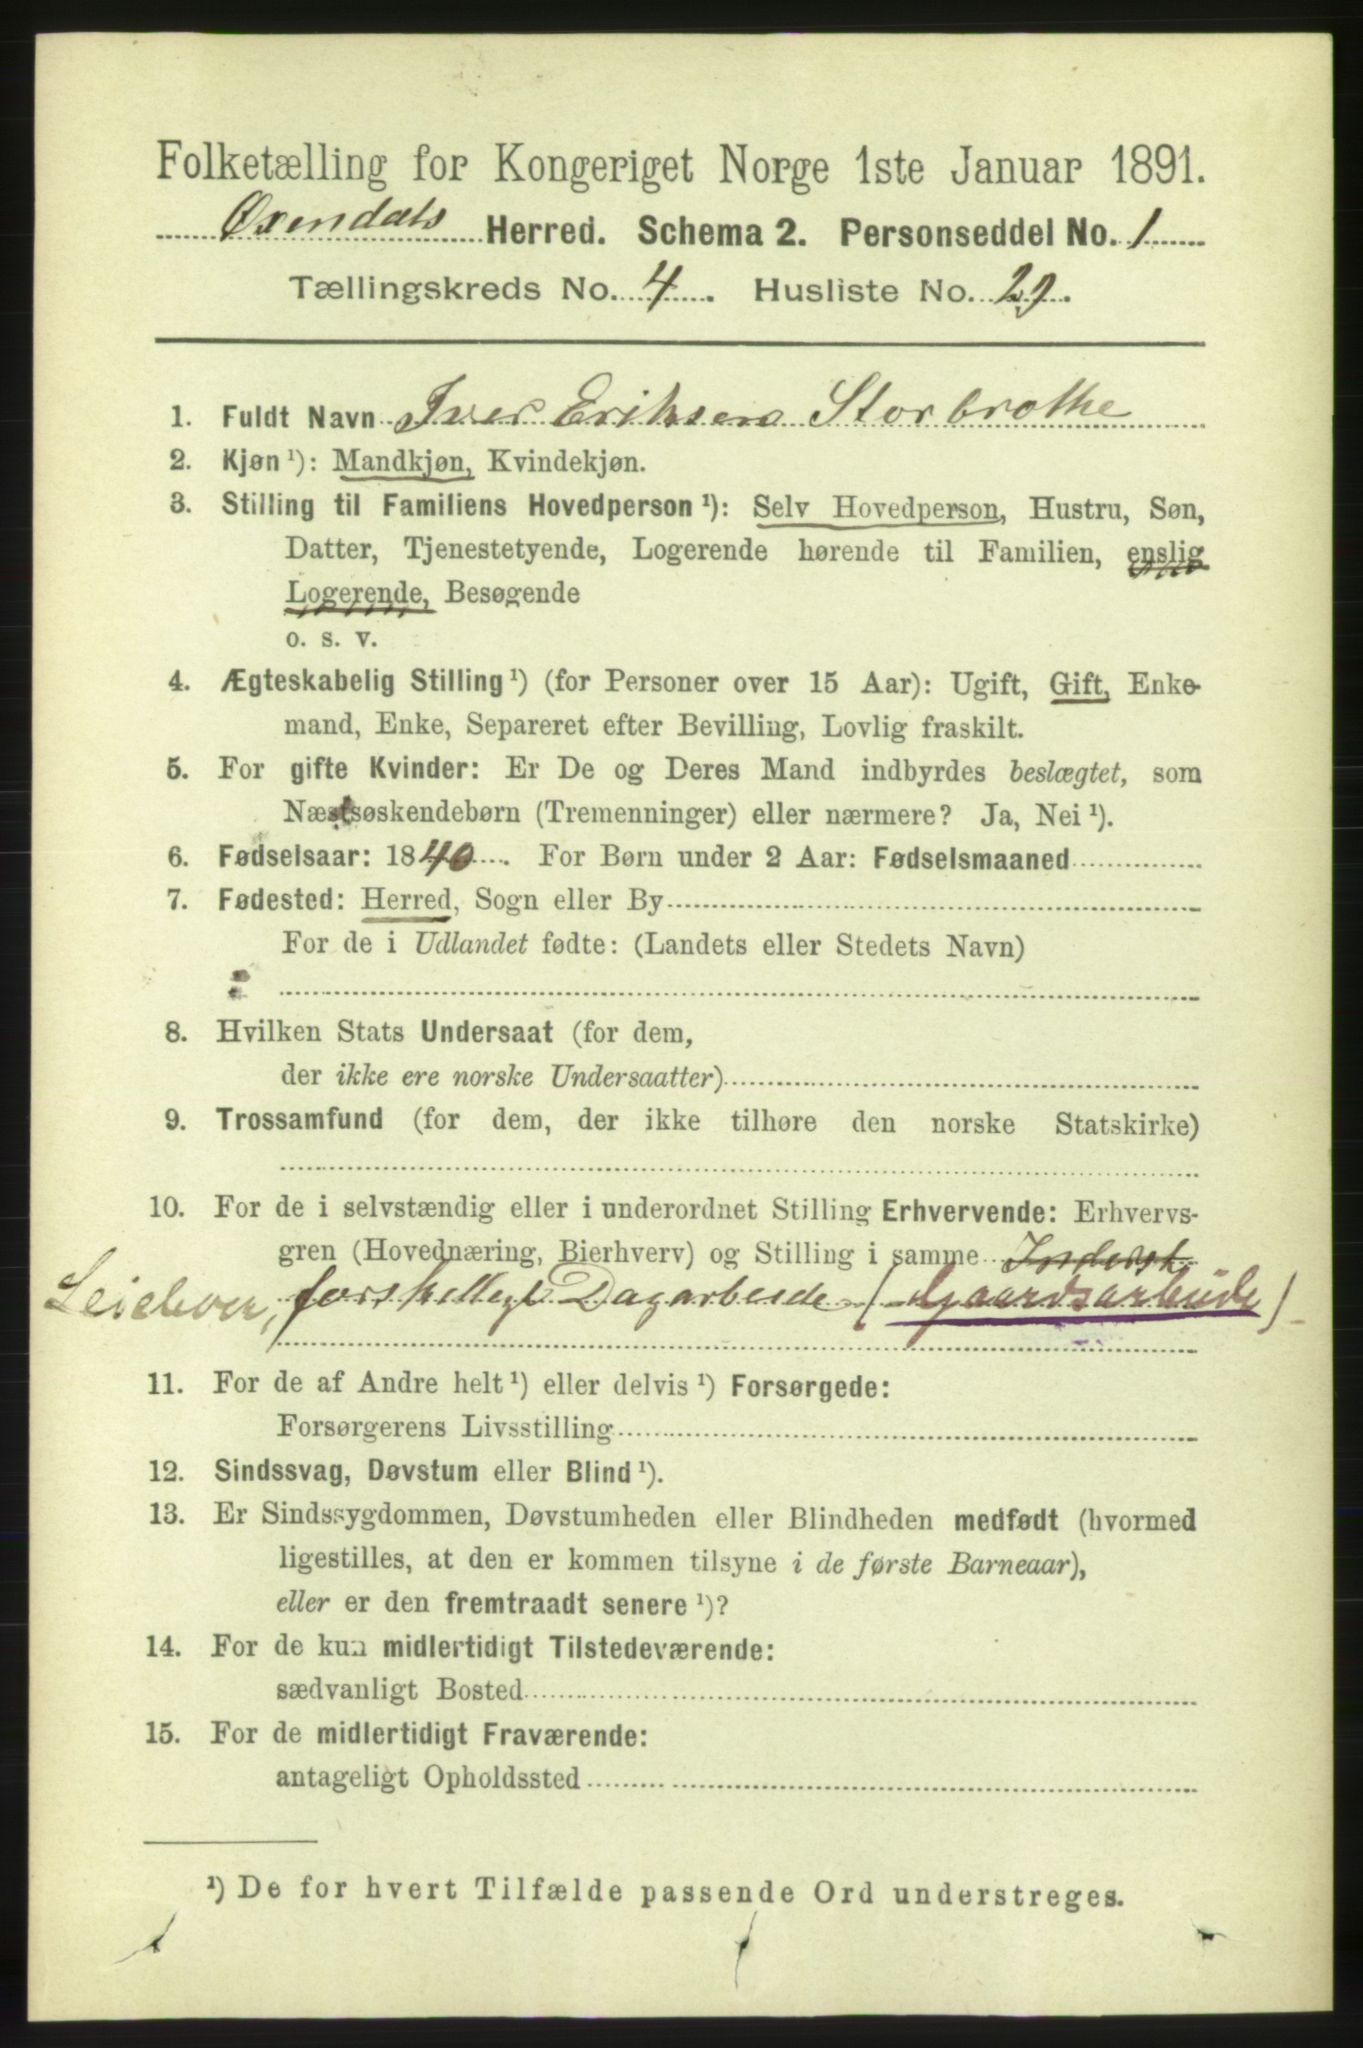 Folketælling for Kongeriget Norge 1ste Januar 1891.
Øxendals Herred. Schema 2. Personseddel No. 1
Tællingskreds No. 4. Husliste No. 29.
1. Fuldt Navn Iver Eriksen Storbrothe
2. Kjøn ¹): Mandkjøn, Kvindekjøn.
3. Stilling til Familiens Hovedperson ¹): Selv Hovedperson, Hustru, Søn,
Datter, Tjenestetyende, Logerende hørende til Familien, enslig
Logerende, Besøgende
o. s. v.
4. Ægteskabelig Stilling ¹) (for Personer over 15 Aar): Ugift, Gift, Enke-
mand, Enke, Separeret efter Bevilling, Lovlig fraskilt.
5. For gifte Kvinder: Er De og Deres Mand indbyrdes beslægtet, som
Næstsøskendebørn (Tremenninger) eller nærmere? Ja, Nei ¹).
6. Fødselsaar: 1840. For Børn under 2 Aar: Fødselsmaaned
7. Fødested: Herred, Sogn eller By
For de i Udlandet fødte: (Landets eller Stedets Navn)
8. Hvilken Stats Undersaat (for dem,
der ikke ere norske Undersaatter)
9. Trossamfund (for dem, der ikke tilhøre den norske Statskirke)
10. For de i selvstændig eller i underordnet Stilling Erhvervende: Erhvervs-
gren (Hovednæring, Bierhverv) og Stilling i samme Inderst,
forskellegt Dagarbeide (Gaardsarbeide)
11. For de af Andre helt ¹) eller delvis ¹) Forsørgede:
Forsørgerens Livsstilling
12. Sindssvag, Døvstum eller Blind ¹).
13. Er Sindssygdommen, Døvstumheden eller Blindheden medfødt (hvormed
ligestilles, at den er kommen tilsyne i de første Barneaar),
eller er den fremtraadt senere ¹)?
14. For de kun midlertidigt Tilstedeværende:
sædvanligt Bosted
15. For de midlertidigt Fraværende:
antageligt Opholdssted
¹) De for hvert Tilfælde passende Ord understreges.